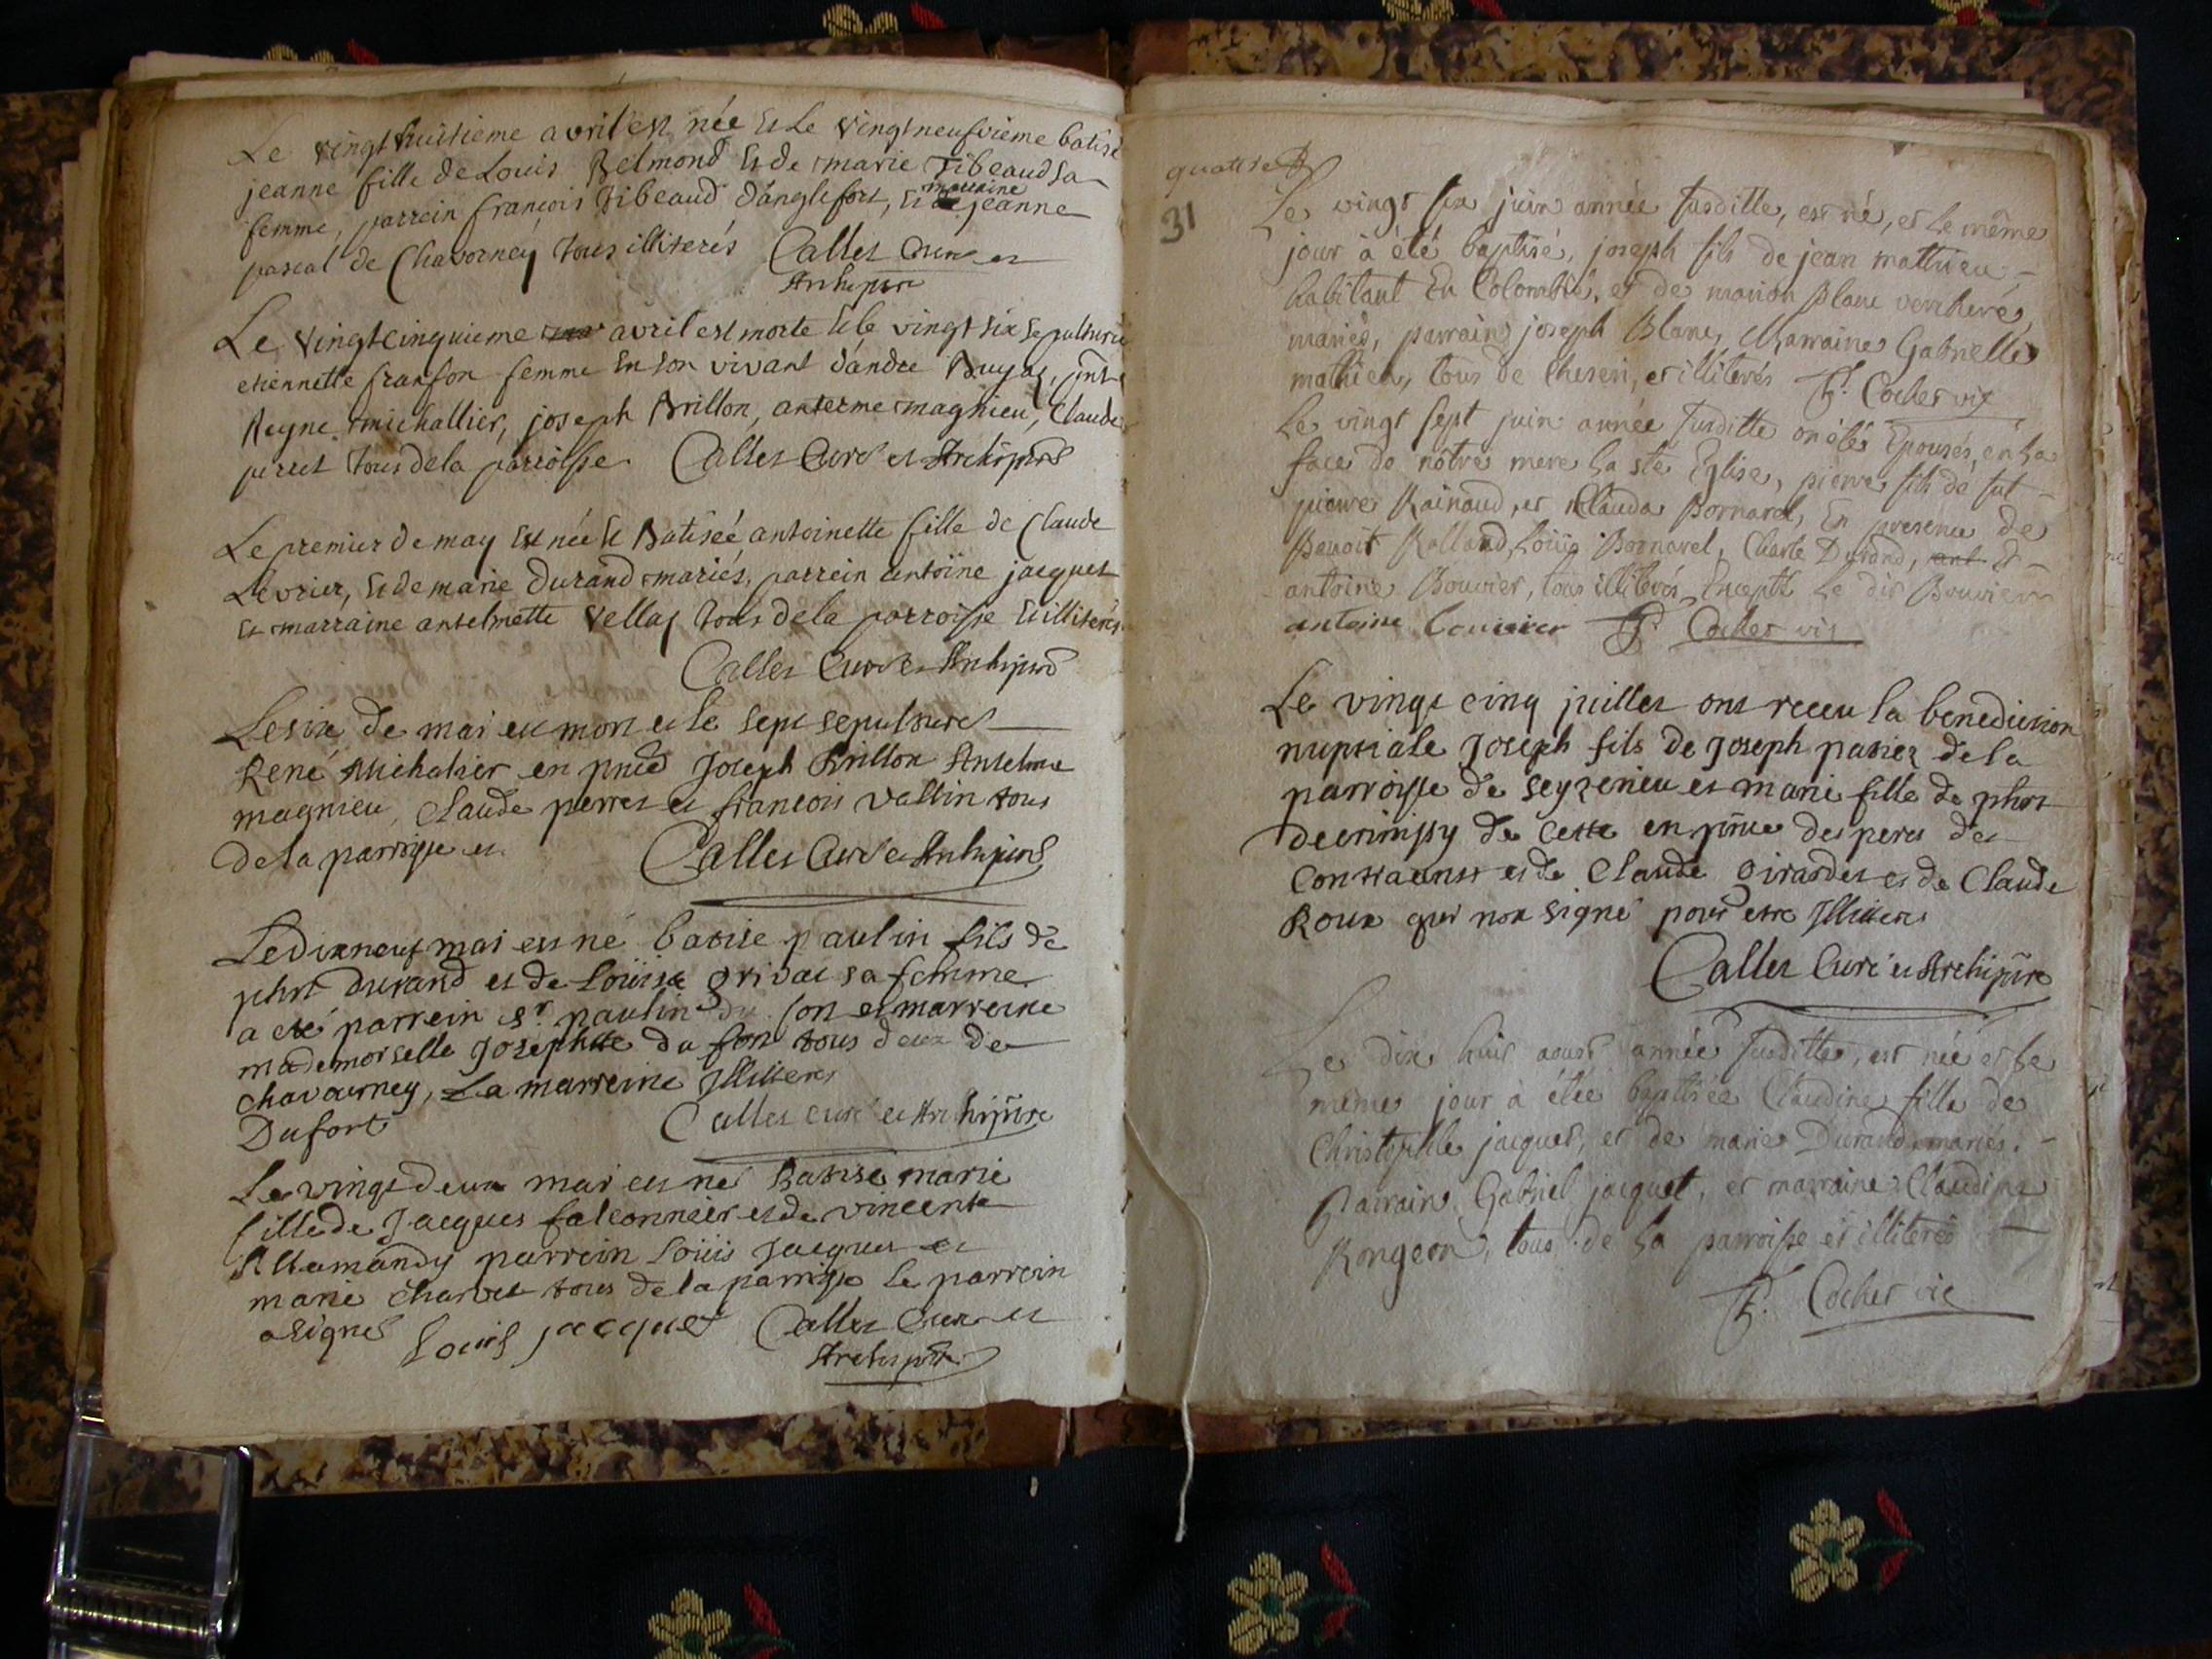 Le vingt huitieme avril est née & Le vingtneufvieme batisé
jeanne fille de Louis Belmond & de marie Tibeaud sa
femme, parrein françois Tibeaud d'anglefort, & marraine jeanne
pascal de Chavorney tous illiterés Callet Curé et
Archiprtre
Le vingtcinquieme avril est morte & le vingt six sepulturée
etiennette franson femme En son vivant d'andre Buyat, pnts
Reyne michallier, joseph Brillon, anterme magnieu, Claude
perret tous de la parroisse Callet Curé et Archiprtre
Le premier de may Est née & Batiseé antoinette fille de Claude
Levrier, & de marie Durand mariés, parrein antoine jacquet
Et marraine antelmette Vellas tous de la parroisse & illiterés
Callet Curé et Archiprtre
Le six de mai est mort et le sept sepulturé
René Michalier en pnce Joseph Brillon Anselme
magnieu, Claude perret et francois vallin tous
de la parroisse et
Callet Curé et Archiprtre
Le dixneuf mai est né batise paulin fils de
phrt Durand et de Loüise grivat sa femme
a eté parrein sr. paulin du fort et marreine
mademoiselle Josephtte du fort tous deux de
chavourney, La marreine Illiteré
Dufort Callet curé et Archiprtre
Le vingt deux mai est né Batise marie
fille de Jacques falconnier et de vincente
Allemandy parrein Loüis Jacquet et
marie charvet tous de la parroisse le parrein
a signé Louis jacquet Callet Curé et
Archiprtre
quattre
31
Le vingt six juin année susditte, est né, et le même
jour à été baptisé, joseph fils de jean mathieu
habitant En Colombié, et de marion Blanc vercheré,
mariés, parrain joseph Blanc, Marraine Gabrielle
mathieu, tous de Cheseri, et illiterés F. Cochet vic
Le vingt sept juin année susditte on étés Epousés, en la
face de nôtre mere la ste Eglise, pierre fils de fut
pierre Rainaud, et Clauda Bornarel, En presence de
Benoit Rolland, Loüis Bornarel, Charle Durand, ant &
antoine Bouvier, tous illiterés, Excepté le dit Bouvier
antoine bouvier F. Cochet vic
Le vingt cinq juillet ont receu la benediction
nuptiale Joseph fils de Joseph pavier de la
parroisse de seyzerieu et marie fille de phrt
decrimpsy de Cette en pnce des peres des
Contraenst et de Claude girardet et de Claude
Roux qui non signé pour etre Illiteres
Callet Curé et Archiprtre
Le dix huit aoust année susditte, est née et le
meme jour à étée baptisée Claudine fille de
Christophle jacquet, et de marie Durand mariés.
Parrain Gabriel jacquet, et marraine Claudine
Rongeon, tous de la parroisse et illiteres
F. Cochet vic